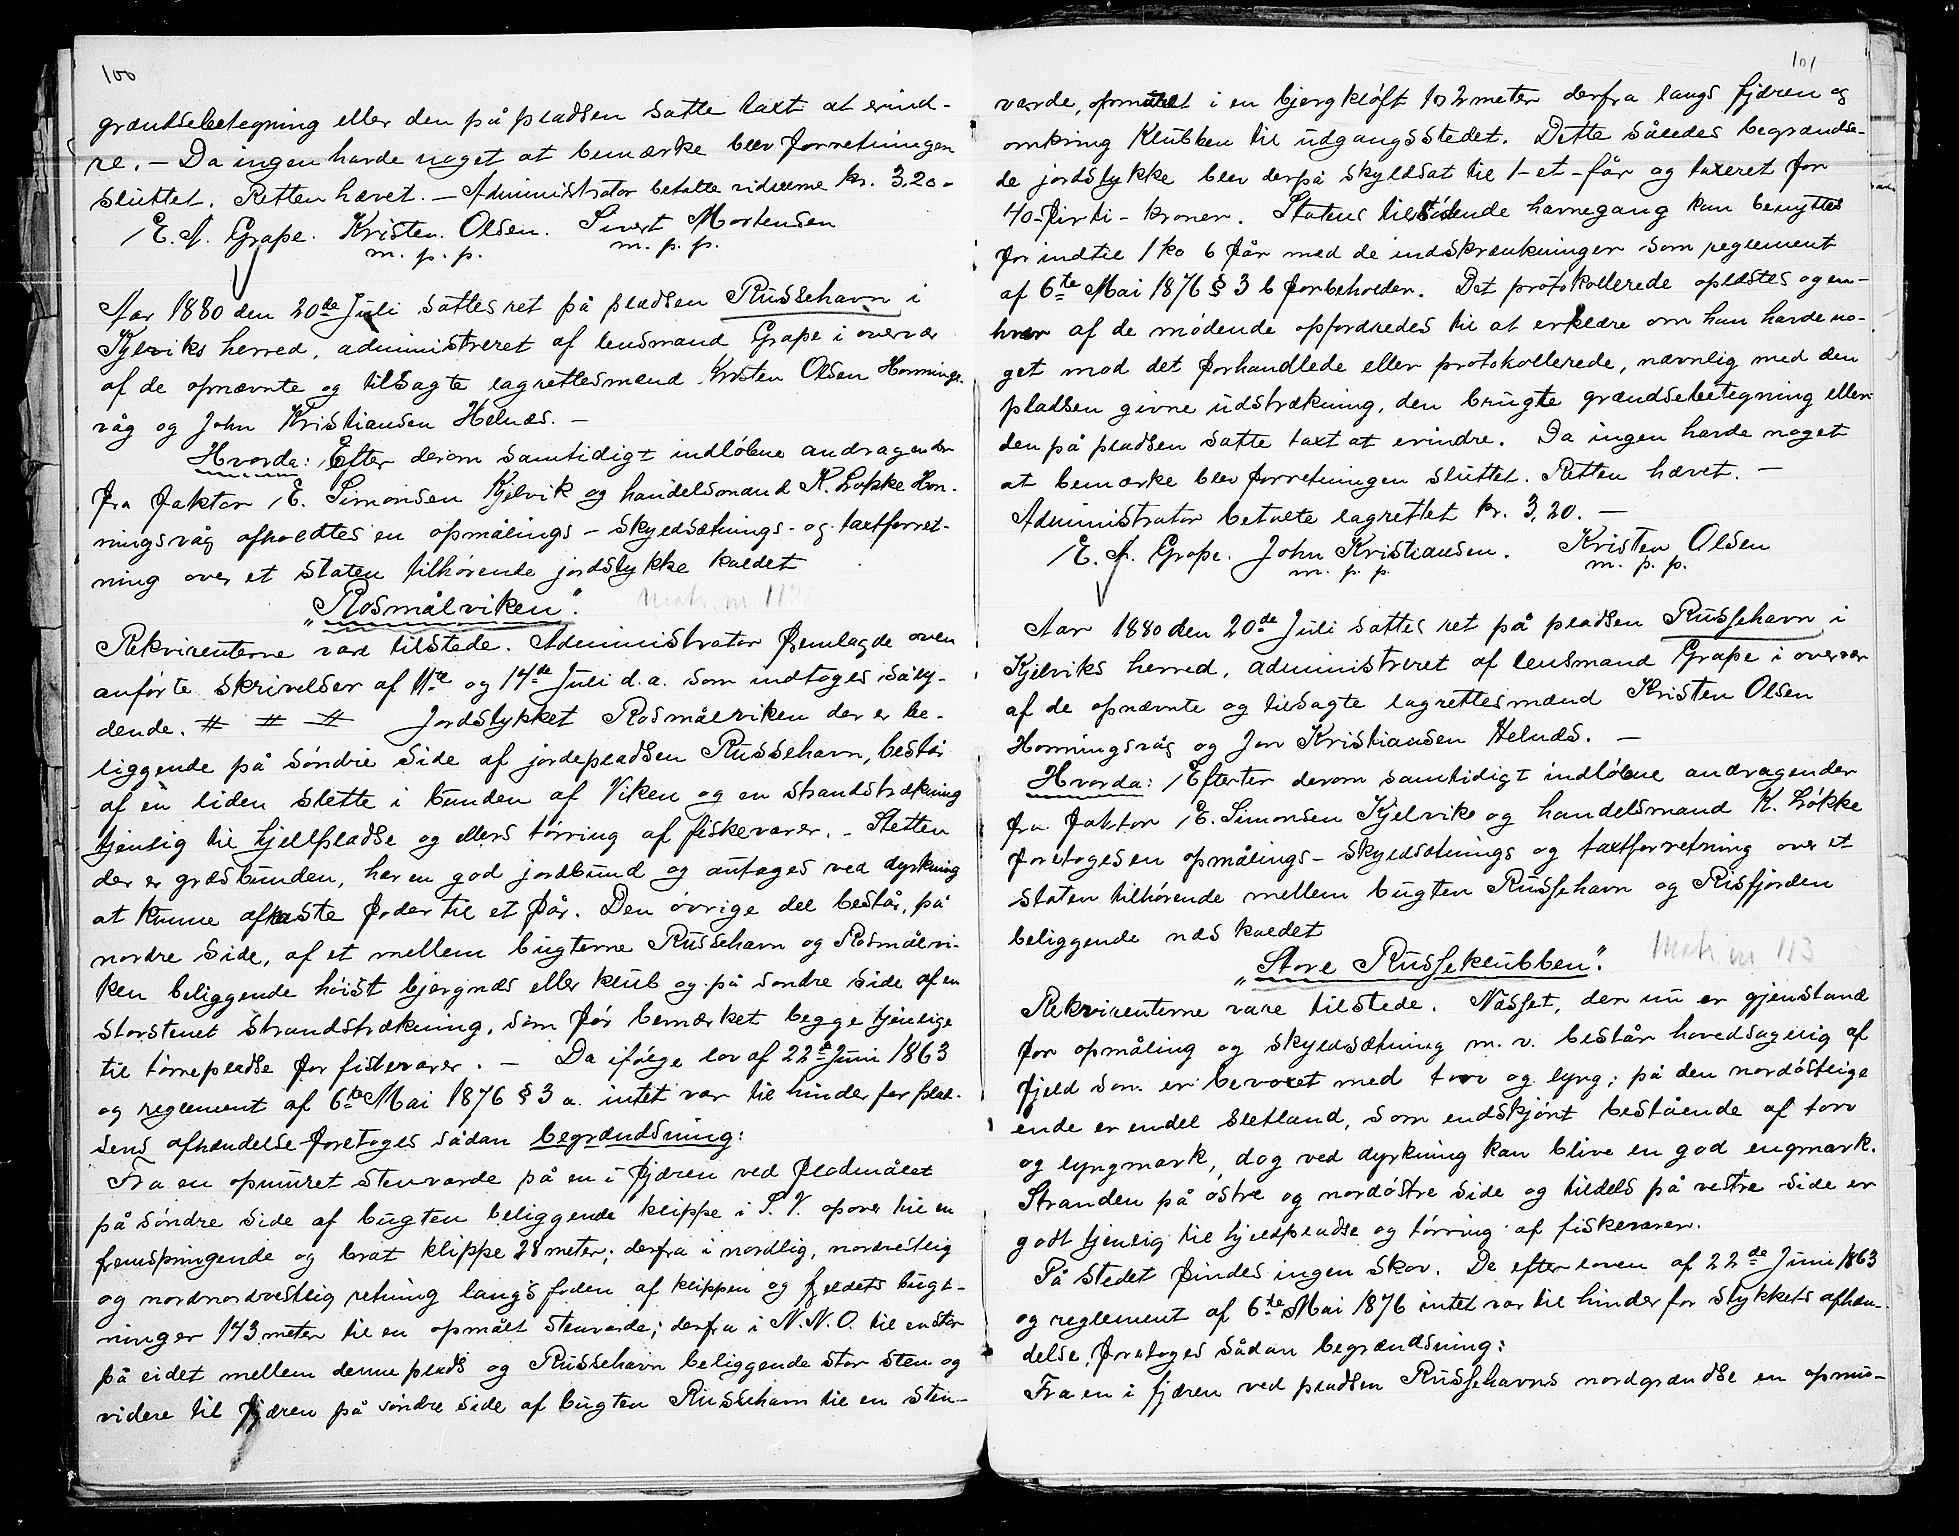 100
grændsebetegning eller den på pladsen satte taxt at erind-
re. - Da ingen havde noget at bemærke blev forretningen
sluttet. Retten hævet. - Administrator betalte vidnerne kr. 3,20.
E. A. Grape. Kristen Olsen. Sivert Mortensen
m. p. p. m. p. p.
Aar 1880 den 20de Juli sattes ret på pladsen Russehavn i
Kjelviks herred, administreret af lensmand Grape i overvær
af de opnævnte og tilsagte lagrettesmænd Kristen Olsen Honnings-
våg og John Kristiansen Helnæs. -
Hvorda: Efter derom samtidigt indløbne andragender
fra faktor E. Simonsen Kjelvik og handelsmand K. Løkke Hon-
ningsvåg afholdtes en opmålings - skyldsætnings - og taxtforret-
ning over et staten tilhørende jordstykke kaldet
"Rosmålviken". Matr. nr 112
Rekvirenterne vare tilstede. Administrator fremlagde oven
anførte skrivelser af 11te og 14de Juli d. a. som indtoges såly-
dende. # # # Jordstykket Rosmålviken der er be-
liggende på søndre side af jordepladsen Russehavn, består
af en liden slette i bunden af Viken og en strandstrækning
tjenlig til hjellpladse og ellers tørring af fiskevarer. - Sletten
der er græsbunden, har en god jordbund og antages ved dyrkning
at kunne afkaste foder til et får. Den øvrige del består, på
nordre side, af et mellem bugterne Russehavn og Rosmålvi-
ken beliggende høist bjergnæs eller klub og på søndre side af en
storstenet strandstrækning, som før bemærket begge tjenlige
til tørrepladse for fiskevarer. - Da ifølge lov af 22de Juni 1863
og reglement af 6te Mai 1876 § 3 a. intet var til hinder for plad-
sens afhændelse foretoges sådan begrændsning:
Fra en opmuret stenvarde på en i fjæren ved flodmålet
på søndre side af bugten beliggende klippe i S. V. opover til en
fremspringende og brat klippe 28 meter; derfra i nordlig, nordvestlig
og nordnordvestlig retning langs foden af klippen og fjeldets bugt-
ninger 143 meter til en opmålt stenvarde; derfra i N. N. O. til en stor
på eidet mellem denne plads og Russehavn beliggende stor sten og
videre til fjæren på søndre side af bugten Russehavn til en sten-
101
varde, opmuret i en bjergkløft 102 meter derfra langs fjæren og
omkring Klubben til udgangsstedet. Dette således begrændse-
de jordstykke blev derpå skyldsat til 1 - et - får og taxeret for
40 - firti - kroner. Statens tilstødende havnegang kan benyttes
for indtil 1 ko 6 får med de indskrænkninger som reglement
af 6te Mai 1876 § 3 b forbeholder. Det protokollerede oplæstes og en-
hver af de mødende opfordredes til at erklære om han havde no-
get mod det forhandlede eller protokollerede, nævnlig med den
pladsen givne udstrækning, den brugte grændsebetegning eller
den på pladsen satte taxt at erindre. Da ingen havde noget
at bemærke blev forretningen sluttet. Retten hævet. -
Administrator betalte lagrettet kr. 3,20. -
E. A. Grape. John Kristiansen. Kristen Olsen
m. p. p. m. p. p.
Aar 1880 den 20de Juli sattes ret på pladsen Russehavn i
Kjelviks herred, administreret af lensmand Grape i overvær
af de opnævnte og tilsagte lagrettesmænd Kristen Olsen
Honningsvåg og Jon Kristiansen Helnæs. -
Hvorda: Efterter derom samtidigt indløbne andragender
fra faktor E. Simonsen Kjelvik og handelsmand K. Løkke
foretoges en opmålings - skyldsætnings og taxtforretning over et
staten tilhørende mellem bugten Russehavn og Risfjorden
beliggende næs kaldet
"Store Russeklubben". Matr nr 113
Rekvirenterne vare tilstede. Næsset, der nu er gjenstand
for opmåling og skyldsætning m. v. består hovedsagelig af
fjeld som er bevoxet med torv og lyng; på den nordøstlige
ende er endel sletland, som endskjønt bestående af torv
og lyngmark, dog ved dyrkning kan blive en god engmark.
Stranden på østre og nordøstre side og tildels på vestre side er
godt tjenlig til hjeldpladse og tørring af fiskevarer.
På stedet findes ingen skov. Da efter loven af 22de Juni 1863
og reglement af 6te Mai 1876 intet var til hinder for stykkets afhæn-
delse, foretoges sådan begrændsning:
Fra en i fjæren ved pladsen Russehavns nordgrændse en opmu-